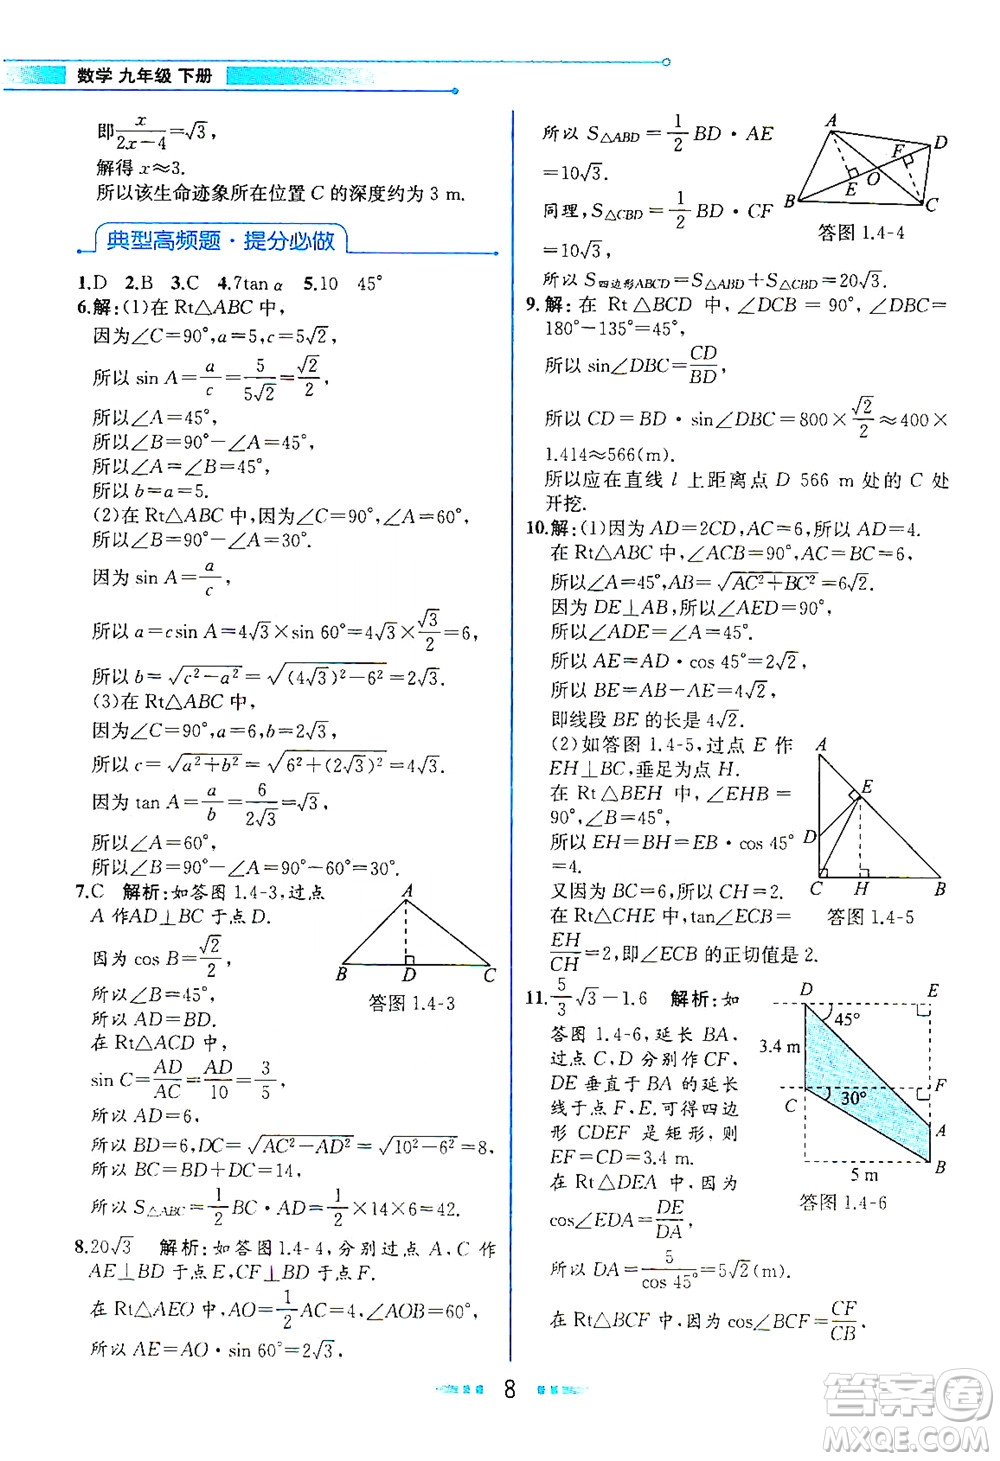 数学 九年级 下册
即x/(2x-4)=√3,
解得 x≈3.
所以该生命迹象所在位置 C 的深度约为 3 m.
典型高频题·提分必做
1.D 2.B 3.C 4.7tan α 5.10 45°
6.解:(1)在 Rt△ABC 中,
因为∠C=90°,a=5,c=5√2,
所以 sin A=a/c=5/(5√2)=√2/2,
所以∠A=45°,
所以∠B=90°-∠A=45°,
所以∠A=∠B=45°,
所以 b=a=5.
(2)在 Rt△ABC 中,因为∠C=90°,∠A=60°,
所以∠B=90°-∠A=30°.
因为 sin A=a/c,
所以 a=csin A=4√3×sin 60°=4√3×√3/2=6,
所以 b=√(c²-a²)=√((4√3)²-6²)=2√3.
(3)在 Rt△ABC 中,
因为∠C=90°,a=6,b=2√3,
所以 c=√(a²+b²)=√(6²+(2√3)²)=4√3.
因为 tan A=a/b=6/(2√3)=√3,
所以∠A=60°,
所以∠B=90°-∠A=90°-60°=30°.
7.C 解析:如答图 1.4-3,过点
A 作AD⊥BC 于点 D.
因为 cos B=√2/2,
所以∠B=45°,
所以 AD=BD.
在 Rt△ACD 中,
sin C=AD/AC=AD/10=3/5,
所以 AD=6,
所以 BD=6,DC=√(AC²-AD²)=√(10²-6²)=8,
所以 BC=BD+DC=14,
所以 S△ABC=1/2BC·AD=1/2×14×6=42.
A
B D C
答图 1.4-3
8.20√3 解析:如答图1.4-4,分别过点 A,C 作
AE⊥BD 于点 E,CF⊥BD 于点 F.
在 Rt△AEO 中,AO=1/2AC=4,∠AOB=60°,
所以 AE=AO·sin 60°=2√3,
所以 S△ABD=1/2BD·AE
=10√3.
同理,S△CBD=1/2BD·CF
=10√3,
所以 S四边形ABCD=S△ABD+S△CBD=20√3.
A
D
F
E O
B
C
答图 1.4-4
9.解:在 Rt△BCD 中,∠DCB=90°,∠DBC=
180°-135°=45°,
所以 sin∠DBC=CD/BD,
所以 CD=BD·sin∠DBC=800×√2/2≈400×
1.414≈566(m).
所以应在直线 l 上距离点 D 566 m 处的 C 处
开挖.
10.解:(1)因为 AD=2CD,AC=6,所以 AD=4.
在 Rt△ABC 中,∠ACB=90°,AC=BC=6,
所以∠A=45°,AB=√(AC²+BC²)=6√2.
因为 DE⊥AB,所以∠AED=90°,
所以∠ADE=∠A=45°.
所以 AE=AD·cos 45°=2√2,
所以 BE=AB-AE=4√2,
即线段 BE 的长是 4√2.
(2)如答图 1.4-5,过点 E 作
EH⊥BC,垂足为点 H.
在 Rt△BEH 中,∠EHB=
90°,∠B=45°,
所以 EH=BH=EB·cos 45°
=4.
又因为 BC=6,所以 CH=2.
在 Rt△CHE 中,tan∠ECB=
EH/CH=2,即∠ECB 的正切值是 2.
A
E
D
C H B
答图 1.4-5
11.5/3√3-1.6 解析:如
答图 1.4-6,延长 BA,
过点 C,D 分别作 CF,
DE 垂直于 BA 的延长
线于点 F,E.可得四边
形 CDEF 是矩形,所以
EF=CD=3.4 m.
在 Rt△DEA 中,因为
cos∠EDA=DE/DA,
所以 DA=5/cos 45°=5√2(m).
在 Rt△BCF 中,因为 cos∠BCF=CF/CB,
D E
45°
3.4 m
F
C 30°
A
B
5 m
答图 1.4-6
8
答案圈
MXQE.COM